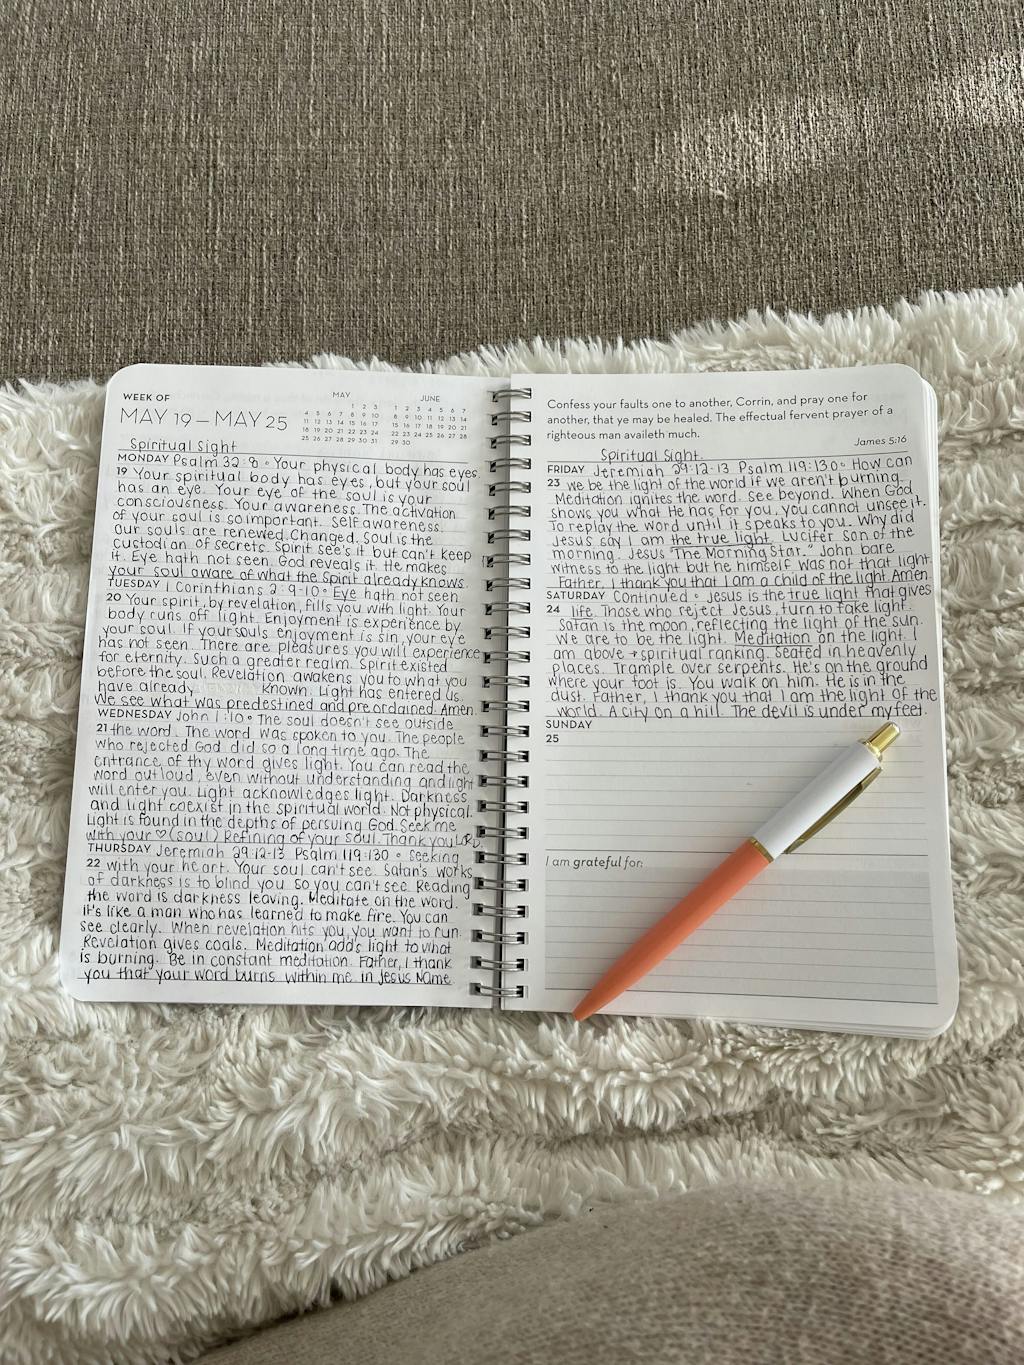 WEEK OF
MAY 19 – MAY 25
MAY
1 2 3
4 5 6 7 8 9 10
11 12 13 14 15 16 17
18 19 20 21 22 23 24
25 26 27 28 29 30 31
JUNE
1 2 3 4 5 6 7
8 9 10 11 12 13 14
15 16 17 18 19 20 21
22 23 24 25 26 27 28
29 30
Spiritual Sight
MONDAY Psalm 32:8 • Your physical body has eyes.
19 Your spiritual body has eyes, but your soul
has an eye. Your eye of the soul is your
consciousness. Your awareness. The activation
of your soul is so important. Self awareness.
our souls are renewed. Changed. Soul is the
custodian of secrets. Spirit see's it but can't keep
it. Eye hath not seen. God reveals it. He makes
your soul aware of what the Spirit already knows.
TUESDAY 1 Corinthians 2:9-10 • Eye hath not seen
20 Your spirit, by revelation, fills you with light. Your
body runs off light. Enjoyment is experience by
your soul. If your souls enjoyment is sin, your eye
has not seen. There are pleasures you will experience
for eternity. Such a greater realm. Spirit existed
before the soul. Revelation awakens you to what you
have already known. Light has entered us.
We see what was predestined and preordained. Amen
WEDNESDAY John 1:10 • The soul doesn't see outside
21 the word. The word was spoken to you. The people
who rejected God did so a long time ago. The
entrance of thy word gives light. You can read the
word out loud, even without understanding and light
will enter you. Light acknowledges light. Darkness
and light coexist in the spiritual world. Not physical.
Light is found in the depths of persuing God. Seek me
with your ♡ (soul) Refining of your soul. Thank you LORD.
THURSDAY Jeremiah 29:12-13 Psalm 119:130 • Seeking
22 with your heart. Your soul can't see. Satan's works
of darkness is to blind you so you can't see. Reading
the word is darkness leaving. Meditate on the word.
it's like a man who has learned to make fire. You can
see clearly. When revelation hits you, you want to run.
Revelation gives coals. Meditation adds light to what
is burning. Be in constant meditation. Father, I thank
you that your word burns within me in Jesus Name
Confess your faults one to another, Corrin, and pray one for
another, that ye may be healed. The effectual fervent prayer of a
righteous man availeth much.
James 5:16
Spiritual Sight.
FRIDAY Jeremiah 29:12-13 Psalm 119:130 • How can
23 we be the light of the world if we aren't burning.
Meditation ignites the word. See beyond. When God
shows you what He has for you, you cannot unsee it.
To replay the word until it speaks to you. Why did
Jesus say I am the true light. Lucifer son of the
morning. Jesus "The Morning Star." John bare
witness to the light but he himself was not that light
Father, I thank you that I am a child of the light. Amen.
SATURDAY Continued • Jesus is the true light that gives
24 life. Those who reject Jesus, turn to fake light.
Satan is the moon, reflecting the light of the sun.
We are to be the light. Meditation on the light. I
am above + spiritual ranking. Seated in heavenly
places. Trample over serpents. He's on the ground
where your foot is. You walk on him. He is in the
dust. Father, I thank you that I am the light of the
world. A city on a hill. The devil is under my feet.
SUNDAY
25
I am grateful for: